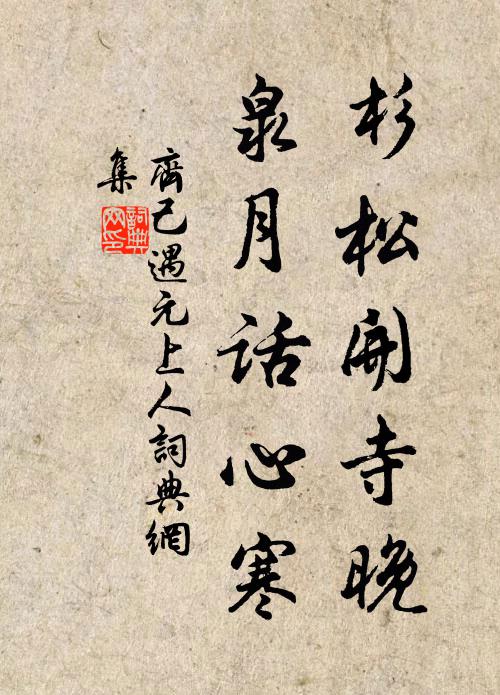 杉松開寺晚
泉月話心寒
齊己遇元上人詞典網
集
詞典
网印